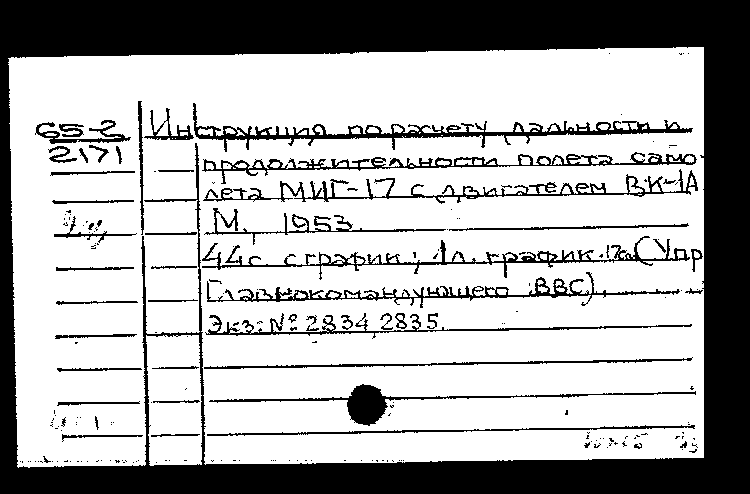 65-2
2171
Инструкция по расчету дальности и
продолжительности полета само-
лета МИГ-17 с двигателем ВК-1А
М., 1953.
44с. с график.; 1л. график. 17см (Упр
Главнокомандующего ВВС).
Экз: № 2834, 2835.